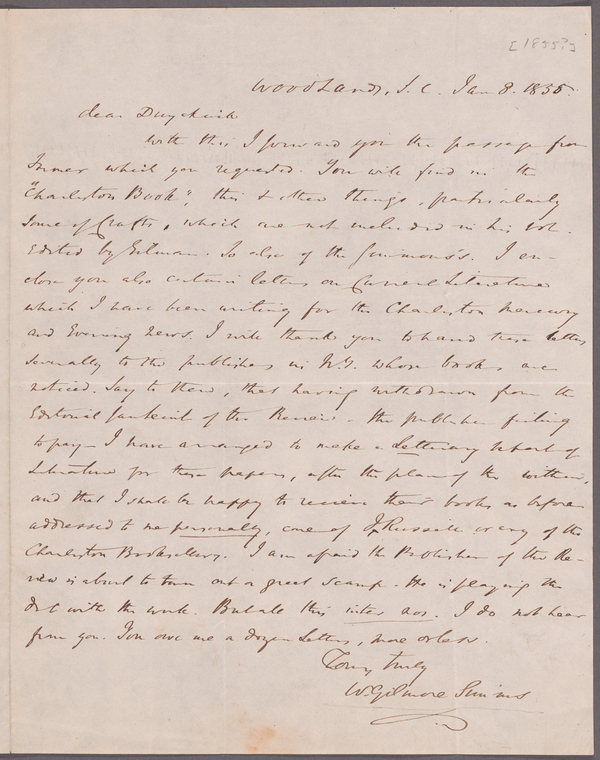 [1855?]
Woodlands, S. C. Jan 8. 1855.
dear Duyckinck
With this I forward you the passage from
which you requested. You will find in the
"Charleston Book", this & other things, particularly
some of Crafts, which are not included in his vol.
Edited by Gilman. So also of the Simmons's. I en-
close you also certain letters on Current Literature
which I have been writing for the Charleston Mercury
and Evening News. I will thank you to hand these letters
severally to the publishers in N.Y. whose books are
noticed. Say to them, that having withdrawn from the
Editorial of the Review – the publisher failing
to pay – I have arranged to make a Letterary Report of
Literature for these papers, after the plan of the within,
and that I shall be happy to receive their books as before
addressed to me personally, care of Russell or any of the
Charleston Booksellers. I am afraid the Publisher of the Re-
view is about to turn out a great scamp. He is playing the
with the work. But all this inter nos. I do not hear
from you. You owe me a dozen Letters, more or less.
Yours truly
W. Gilmore Simms